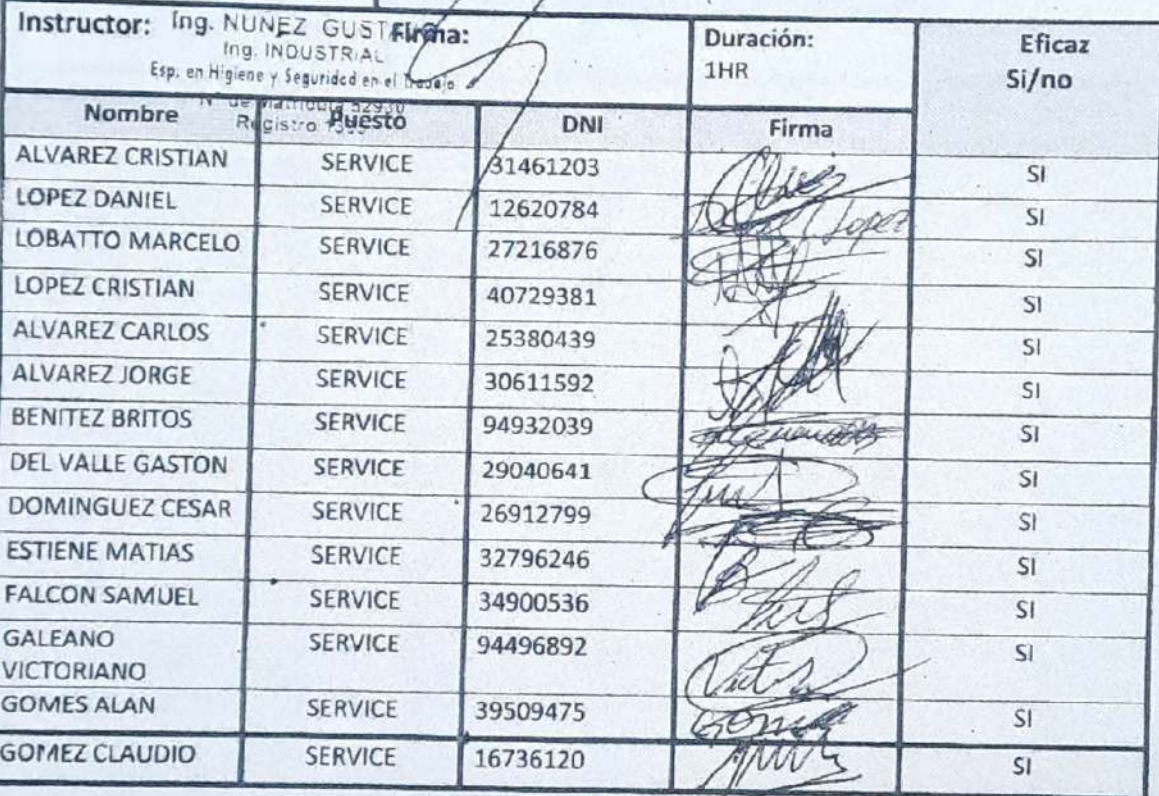 Instructor: Ing. NUÑEZ GUST Firma: Duración: Eficaz
Ing. INDUSTRIAL 1HR Si/no
Esp. en Higiene y Seguridad en el Trabajo
N° de Matricula 52930
Nombre Puesto DNI Firma
Registro
ALVAREZ CRISTIAN SERVICE 31461203 SI
LOPEZ DANIEL SERVICE 12620784 Lopez SI
LOBATTO MARCELO SERVICE 27216876 SI
LOPEZ CRISTIAN SERVICE 40729381 SI
ALVAREZ CARLOS SERVICE 25380439 SI
ALVAREZ JORGE SERVICE 30611592 SI
BENITEZ BRITOS SERVICE 94932039 SI
DEL VALLE GASTON SERVICE 29040641 SI
DOMINGUEZ CESAR SERVICE 26912799 SI
ESTIENE MATIAS SERVICE 32796246 SI
FALCON SAMUEL SERVICE 34900536 SI
GALEANO SERVICE 94496892 SI
VICTORIANO
GOMES ALAN SERVICE 39509475 SI
GOMEZ CLAUDIO SERVICE 16736120 SI